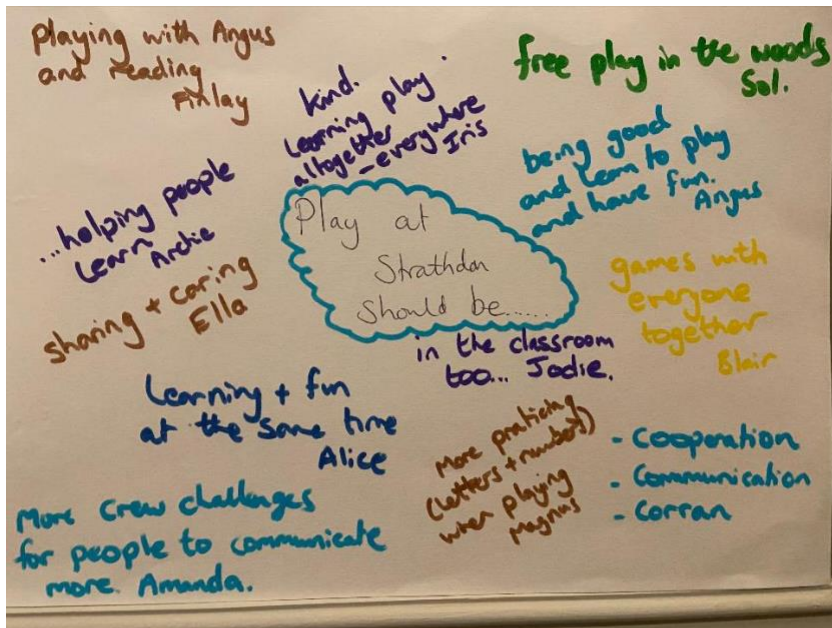 Playing with Angus
and reading
Finlay
kind.
Learning play.
altogether
- everywhere
Iris
free play in the woods
Sol.
being good
and learn to play
and have fun.
Angus
...helping people
Learn
Archie
Play at
Strathdon
should be......
sharing + caring
Ella
games with
everyone
together
Blair
in the classroom
too... Jodie.
Learning + fun
at the same time
Alice
More praticing
(letters + numbers)
when playing
Magnus
- Cooperation
- Communication
- Corran
More Crew challenges
for people to communicate
more. Amanda.